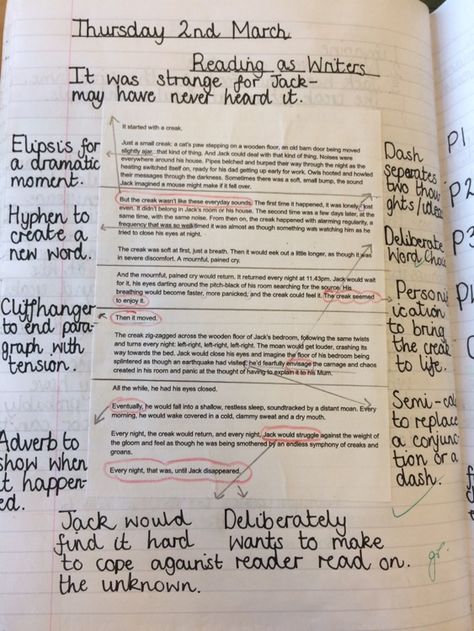 Thursday 2nd March
Reading as Writers
It was strange for Jack-
may have never heard it.
It started with a creak.
Just a small creak: a cat's paw stepping on a wooden floor, an old barn door being moved
slightly ajar...that kind of thing. And Jack could deal with that kind of thing. Noises were
everywhere around his house. Pipes belched and burped their way through the night as the
heating switched itself on, ready for his dad getting up early for work. Owls hooted and howled
their messages through the darkness. Sometimes there was a soft, small bump, the sound
Jack imagined a mouse might make if it fell over.
But the creak wasn't like these everyday sounds. The first time it happened, it was lonely, lost
even. It didn't belong in Jack's room or his house. The second time was a few days later, at the
same time, with the same noise. From then on, the creak happened with alarming regularity, a
frequency that was so well-timed it was almost as though something was watching him as he
tried to close his eyes at night.
The creak was soft at first, just a breath. Then it would eek out a little longer, as though it was
in severe discomfort. A mournful, pained cry.
And the mournful, pained cry would return. It returned every night at 11.43pm. Jack would wait
for it, his eyes darting around the pitch-black of his room searching for the source. His
breathing would become faster, more panicked, and the creak could feel it. The creak seemed
to enjoy it.
Then it moved.
The creak zig-zagged across the wooden floor of Jack's bedroom, following the same twists
and turns every night: left-right, left-right, left-right. The moan would get louder, crashing its
way towards the bed. Jack would close his eyes and imagine the floor of his bedroom being
splintered as though an earthquake had visited; he'd fearfully envisage the carnage and chaos
created in his room and panic at the thought of having to explain it to his Mum.
All the while, he had his eyes closed.
Eventually, he would fall into a shallow, restless sleep, soundtracked by a distant moan. Every
morning, he would wake covered in a cold, clammy sweat and a dry mouth.
Every night, the creak would return, and every night, Jack would struggle against the weight of
the gloom and feel as though he was being smothered by an endless symphony of creaks and
groans.
Every night, that was, until Jack disappeared.
Elipsis for
a dramatic
moment.
Hyphen to
create a
new word.
Cliffhanger
to end para-
graph with
tension.
Adverb to
show when
it happen-
ed.
Dash
seperates
two thou-
ghts/ideas
Deliberate
Word Choice
Personif
ication
to bring
the creak
to life.
Semi-col
to replace
a conjunc-
tion or a
dash.
Jack would
find it hard
to cope against
the unknown.
Deliberately
wants to make
reader read on.
P1
P2
P3